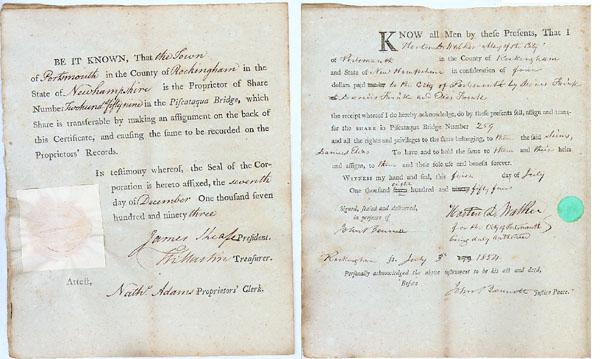 BE IT KNOWN, That the Town
of Portsmouth in the County of Rockingham in the
State of Newhampshire is the Proprietor of Share
Number Two hund fifty nine in the Piscataqua Bridge, which
Share is transferable by making an assignment on the back of
this Certificate, and causing the same to be recorded on the
Proprietors' Records.
IN testimony whereof, the Seal of the Cor-
poration is hereto affixed, the seventh
day of December One thousand seven
hundred and ninety three
James Sheafe President.
Treasurer.
Attest,
Nathl. Adams Proprietors' Clerk.
KNOW all Men by these Presents, That I
Horton D. Walker Mayor of the City
of Portsmouth in the County of Rockingham
and State of New Hampshire in consideration of four
dollars paid to the City of Portsmouth by
the receipt whereof I do hereby acknowledge, do by these presents sell, assign and trans-
fer the SHARE in Piscataqua Bridge Number 259
and all the rights and privileges to the same belonging, to them the said
To have and to hold the same to them and their heirs
and assigns, to them and their sole use and benefit forever.
WITNESS my hand and seal, this day of July
One thousand eight hundred and fifty four
Signed, sealed and delivered,
in presence of
Horton D. Walker
for the City of Portsmouth
being duly authorized
Rockingham ss. July 1854
Personally acknowledged the above instrument to be his act and deed,
Before
Justice Peace.